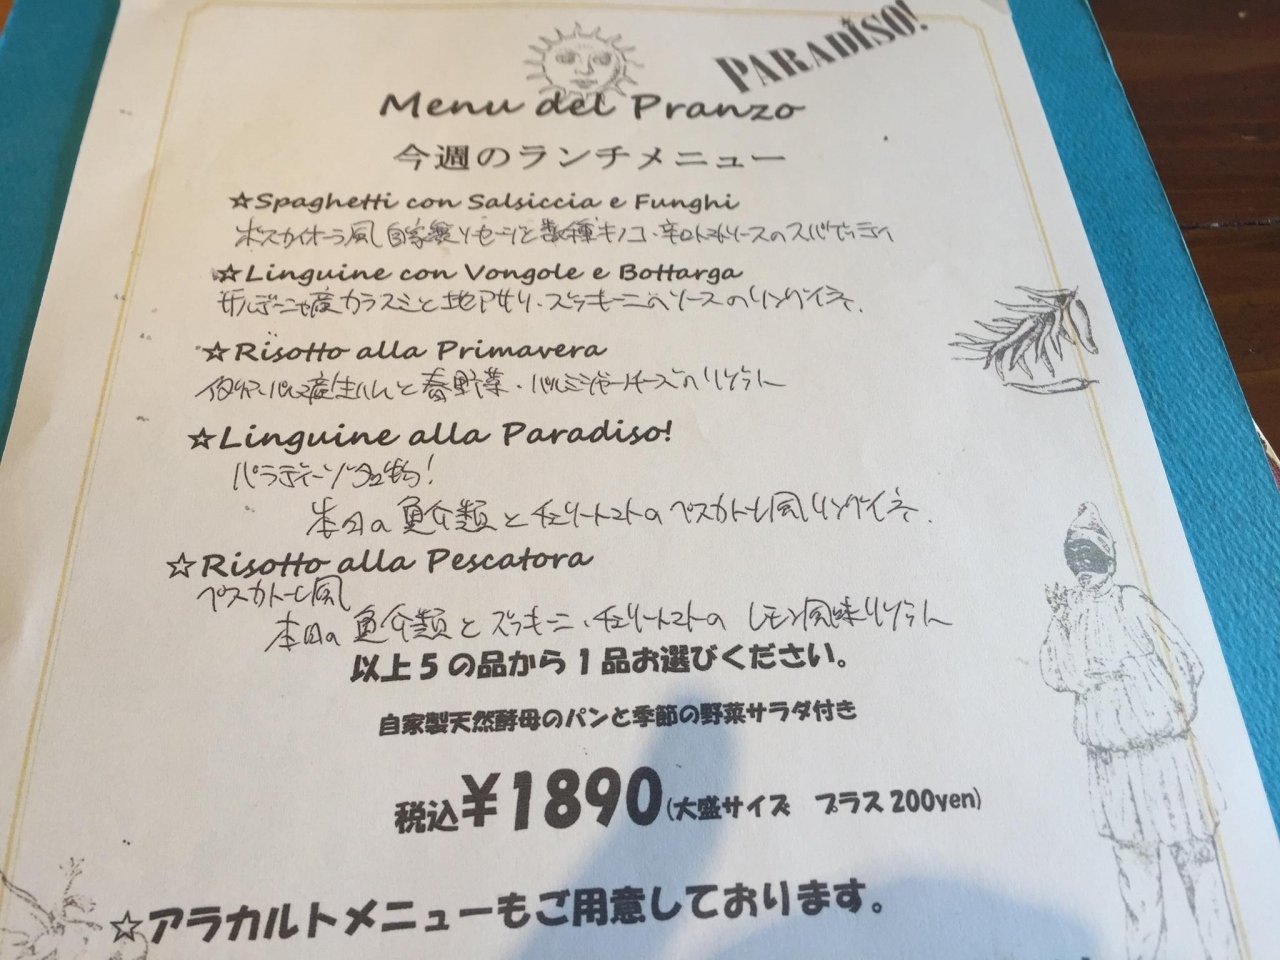 PARADISO!
Menu del Pranzo
今週のランチメニュー
☆Spaghetti con Salsiccia e Funghi
ボスカイオーラ風 自家製ソーセージと数種キノコ・辛口トマトソースのスパゲッティ
☆Linguine con Vongole e Bottarga
サルデーニャ産カラスミと地アサリ・ズッキーニのソースのリングイネ.
☆Risotto alla Primavera
イタリア・パルマ産生ハムと春野菜・パルミジャーノチーズのリゾット
☆Linguine alla Paradiso!
パラディーゾ名物!
本日の魚介類とチェリートマトのペスカトーレ風リングイネ.
☆Risotto alla Pescatora
ペスカトーレ風
本日の魚介類とズッキーニ・チェリートマトの レモン風味リゾット
以上5の品から1品お選びください。
自家製天然酵母のパンと季節の野菜サラダ付き
税込¥1890(大盛サイズ プラス200yen)
☆アラカルトメニューもご用意しております。